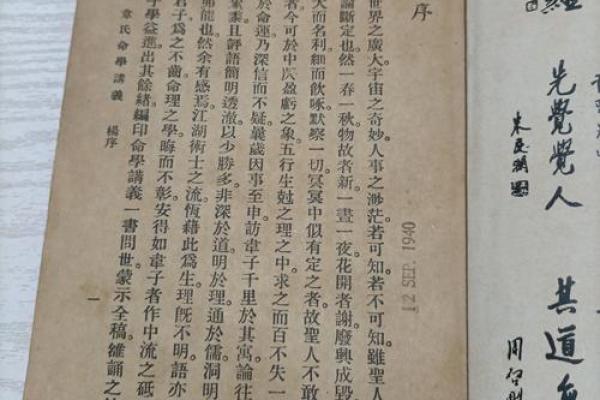 先覺覺人
其道
序
世界之廣大宇宙之奇妙人事之渺茫若可知若不可知雖聖人
論斷定也然一春一秋物故者新一晝一夜花開者謝廢興成毀
大而名利細而飲啄默察一切冥冥中似有定之者故聖人不敢
者今可於中昃盈虧之象五行生尅之理之中求之而百不失一
於命運乃深信而不疑曩歲因事至申訪韋子千里於其寓論往
纍纍且評語簡明透澈以少勝多非深於道明於理通於儒洞明
弗能也然余有感焉江湖術士之流恆藉此爲生理旣不明語亦
君子爲之不齒命理之學晦而不彰安得如韋子者作中流之砥
子學益進出其餘緒編印命學講義一書問世蒙示全稿雒誦之
韋氏命學講義 楊序
一
12 SEP. 1940